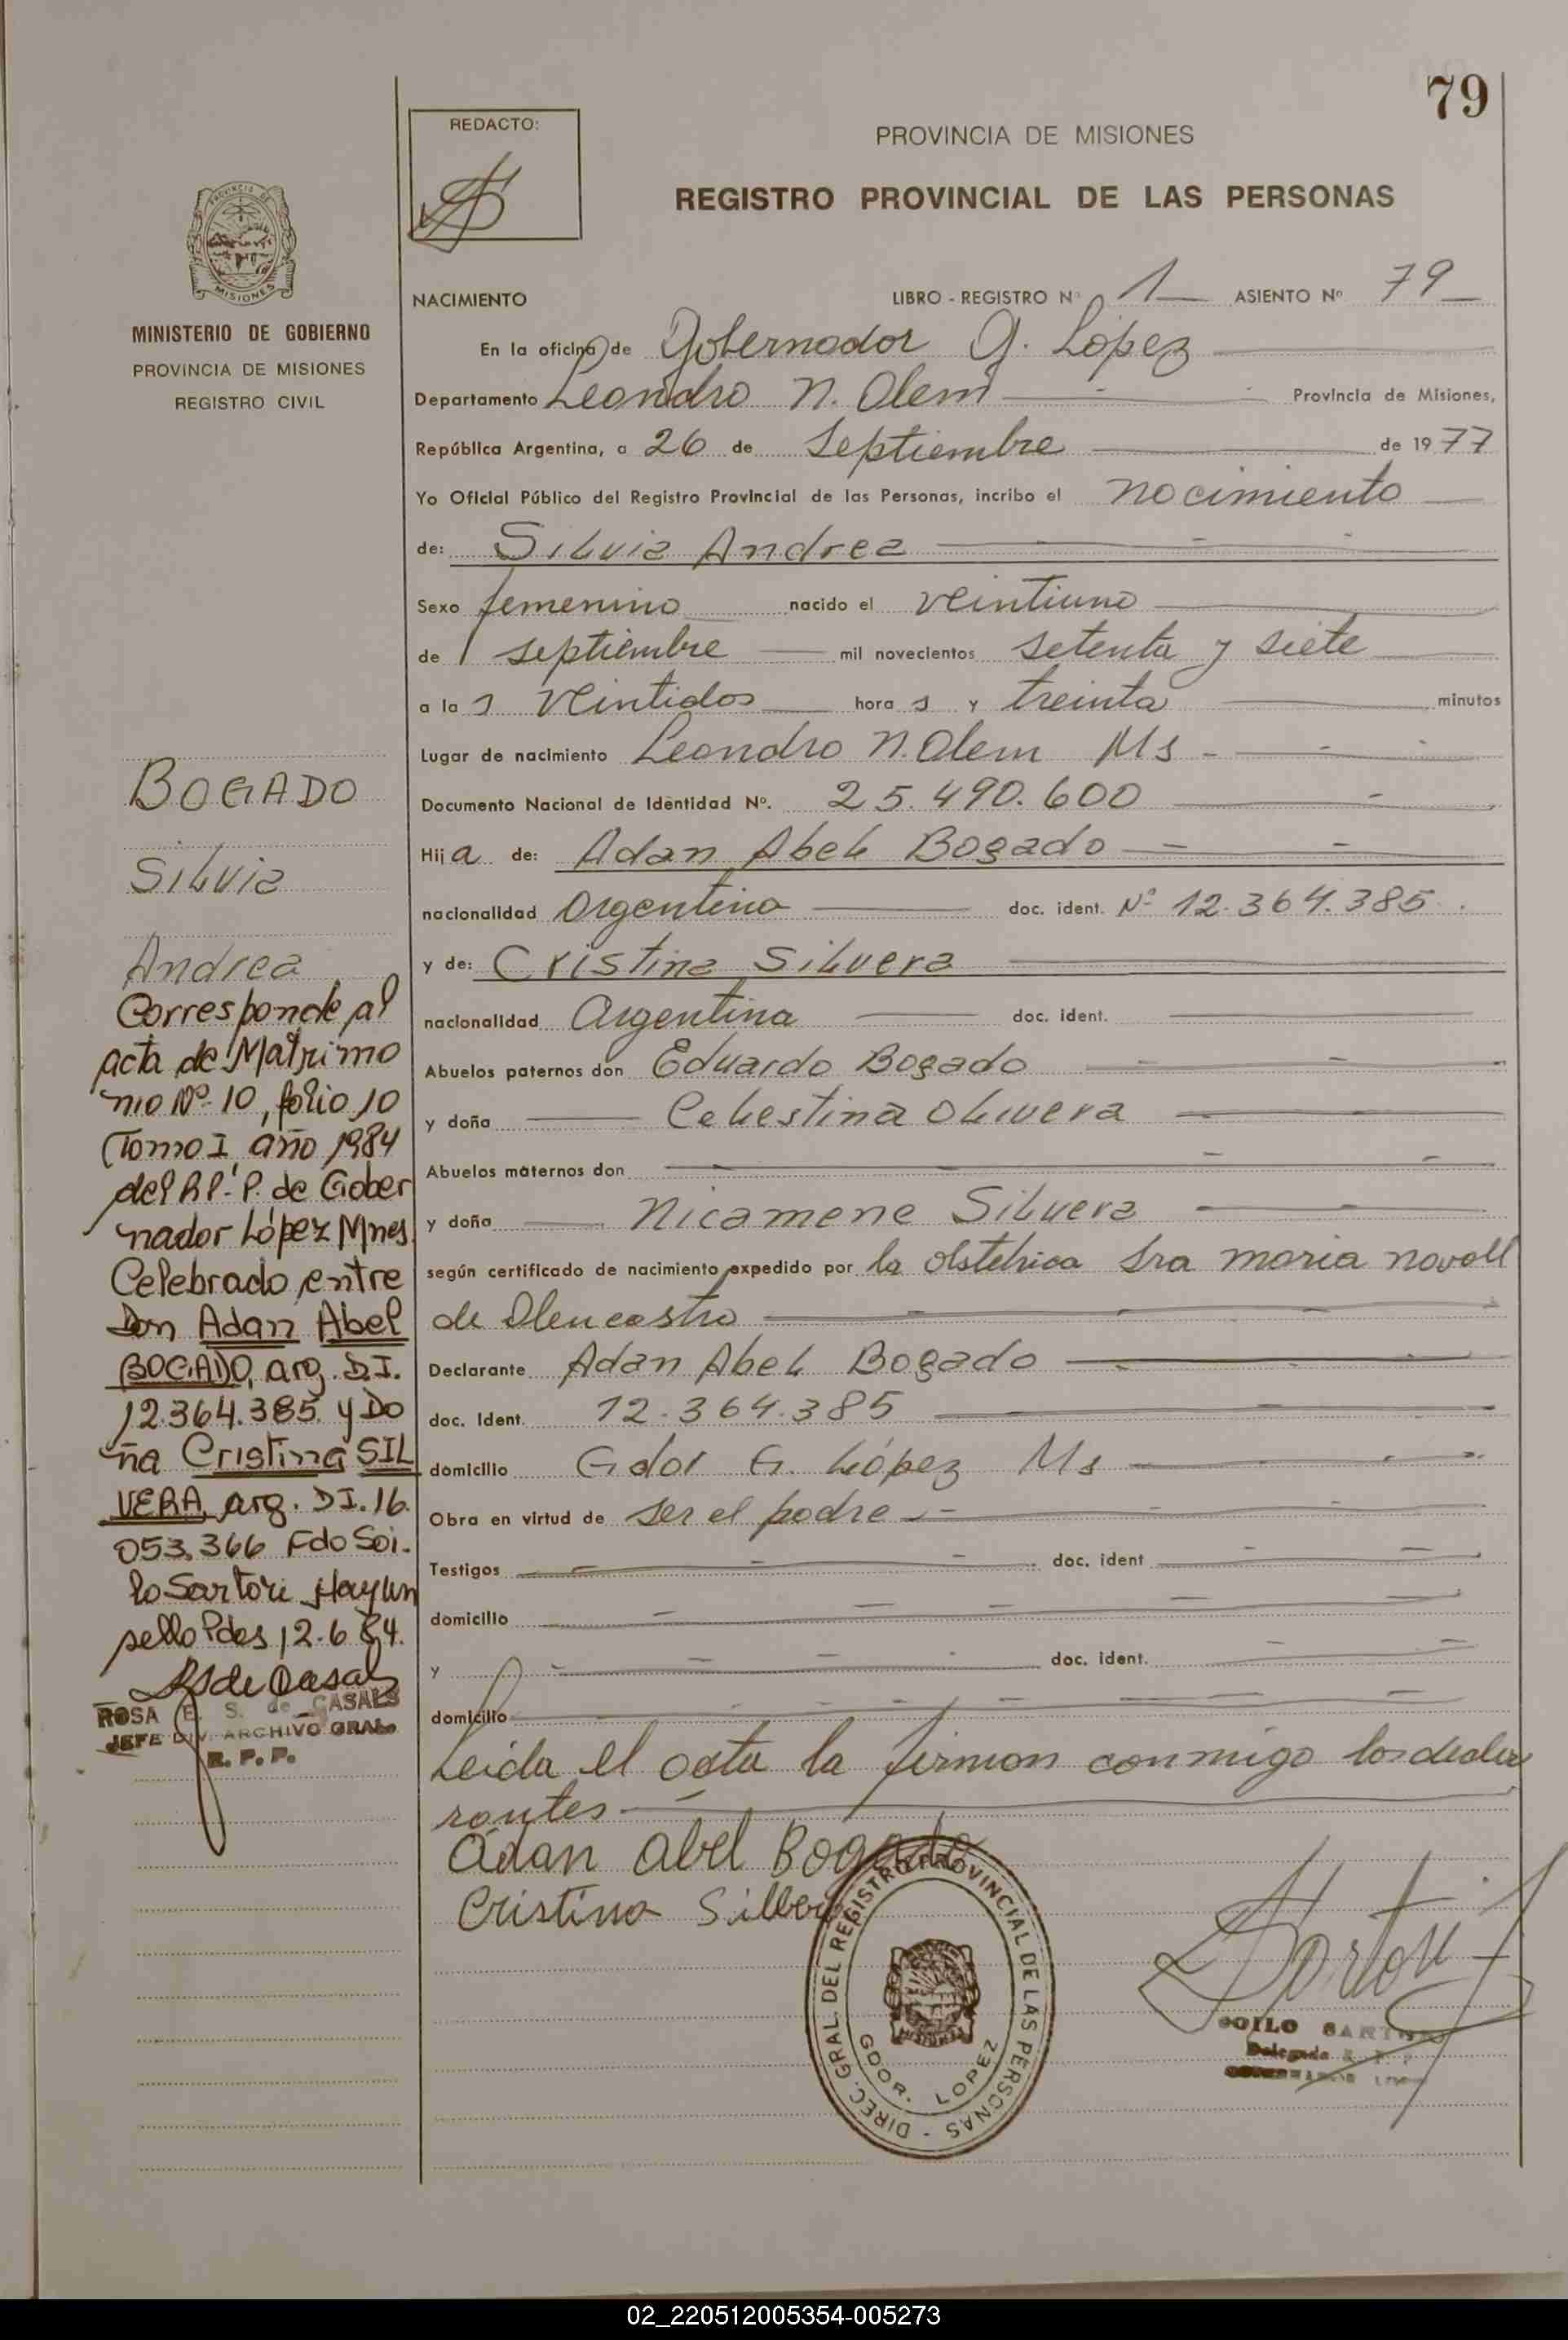 79
REDACTO:
PROVINCIA DE MISIONES
REGISTRO PROVINCIAL DE LAS PERSONAS
PROVINCIA DE
MISIONES
MINISTERIO DE GOBIERNO
PROVINCIA DE MISIONES
REGISTRO CIVIL
NACIMIENTO LIBRO - REGISTRO Nº 1 ASIENTO Nº 79
En la oficina de Gobernador G. López
Departamento Leandro N. Alem Provincia de Misiones,
República Argentina, a 26 de Septiembre de 1977
Yo Oficial Público del Registro Provincial de las Personas, incribo el nacimiento
de: Silvia Andrea
Sexo femenino nacido el veintiuno
de septiembre mil novecientos setenta y siete
a la s veintidos hora s y treinta minutos
Lugar de nacimiento Leandro N. Alem Ms
Documento Nacional de Identidad Nº. 25.490.600
Hij a de: Adan Abel Bogado
nacionalidad Argentina doc. ident. Nº 12.364.385
y de: Cristina Silvera
nacionalidad Argentina doc. ident.
Abuelos paternos don Eduardo Bogado
y doña Celestina Olivera
Abuelos maternos don
y doña Nicamene Silvera
según certificado de nacimiento expedido por la obstetrica Sra maria novall
de Olencastro
Declarante Adan Abel Bogado
doc. Ident. 12.364.385
domicilio Gdor G. López Ms
Obra en virtud de ser el padre
Testigos doc. ident
domicilio
y doc. ident.
domicilio
Leida el acta la firman conmigo los decla
rantes
Adan Abel Bogado
Cristina Silvera
DIREC. GRAL. DEL REGISTRO PROVINCIAL DE LAS PERSONAS -
MISIONES
GDOR. LOPEZ
Sartori
SOILO SARTORI
Delegado R. P. P.
GOBERNADOR LOPEZ
BOGADO
Silvia
Andrea
Corresponde al
acta de Matrimo
nio Nº 10, folio 10
Tomo I año 1984
del R.P.P. de Gober
nador López Mnes.
Celebrado entre
Don Adan Abel
BOGADO, arg. D.I.
12.364.385. y Do
ña Cristina SIL
VERA, arg. DI. 16.
053.366 Fdo Soi.
lo Sartori. Hay un
sello Pdas 12-6-84.
RSde Casals
ROSA E. S. de CASALS
JEFE DIV. ARCHIVO GRAL.
R. P. P.
02_220512005354-005273